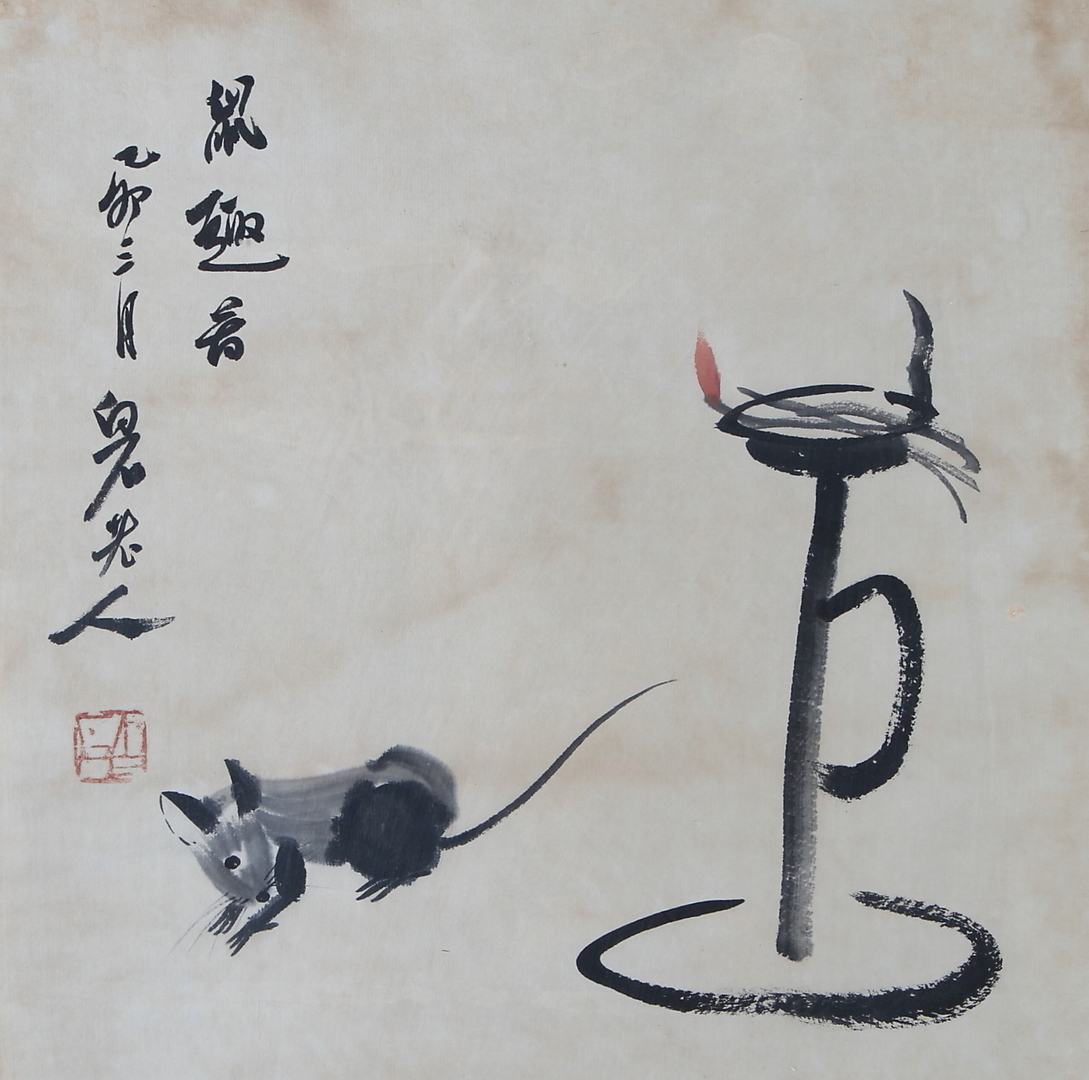 鼠趣
乙卯二月白石老人